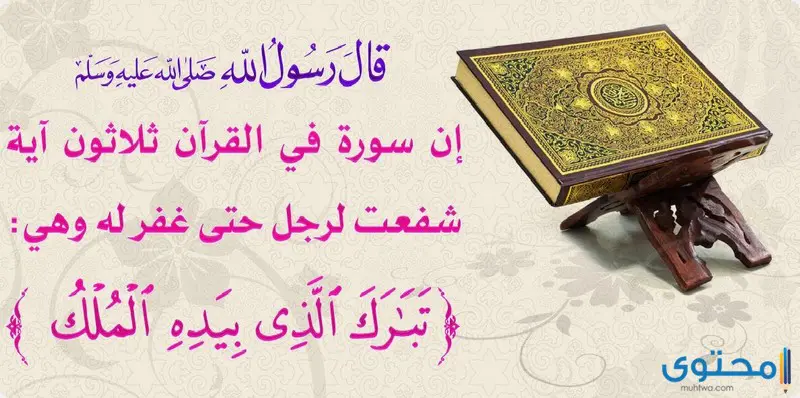 قَالَ رَسُولُ اللّٰهِ صَلَّى اللّٰه عَلَيهِ وَسَلَّم
إن سورة في القرآن ثلاثون آية
شفعت لرجل حتى غفر له وهي:
﴿ تَبَٰرَكَ ٱلَّذِى بِيَدِهِ ٱلْمُلْكُ ﴾
محتوى
muhtwa.com